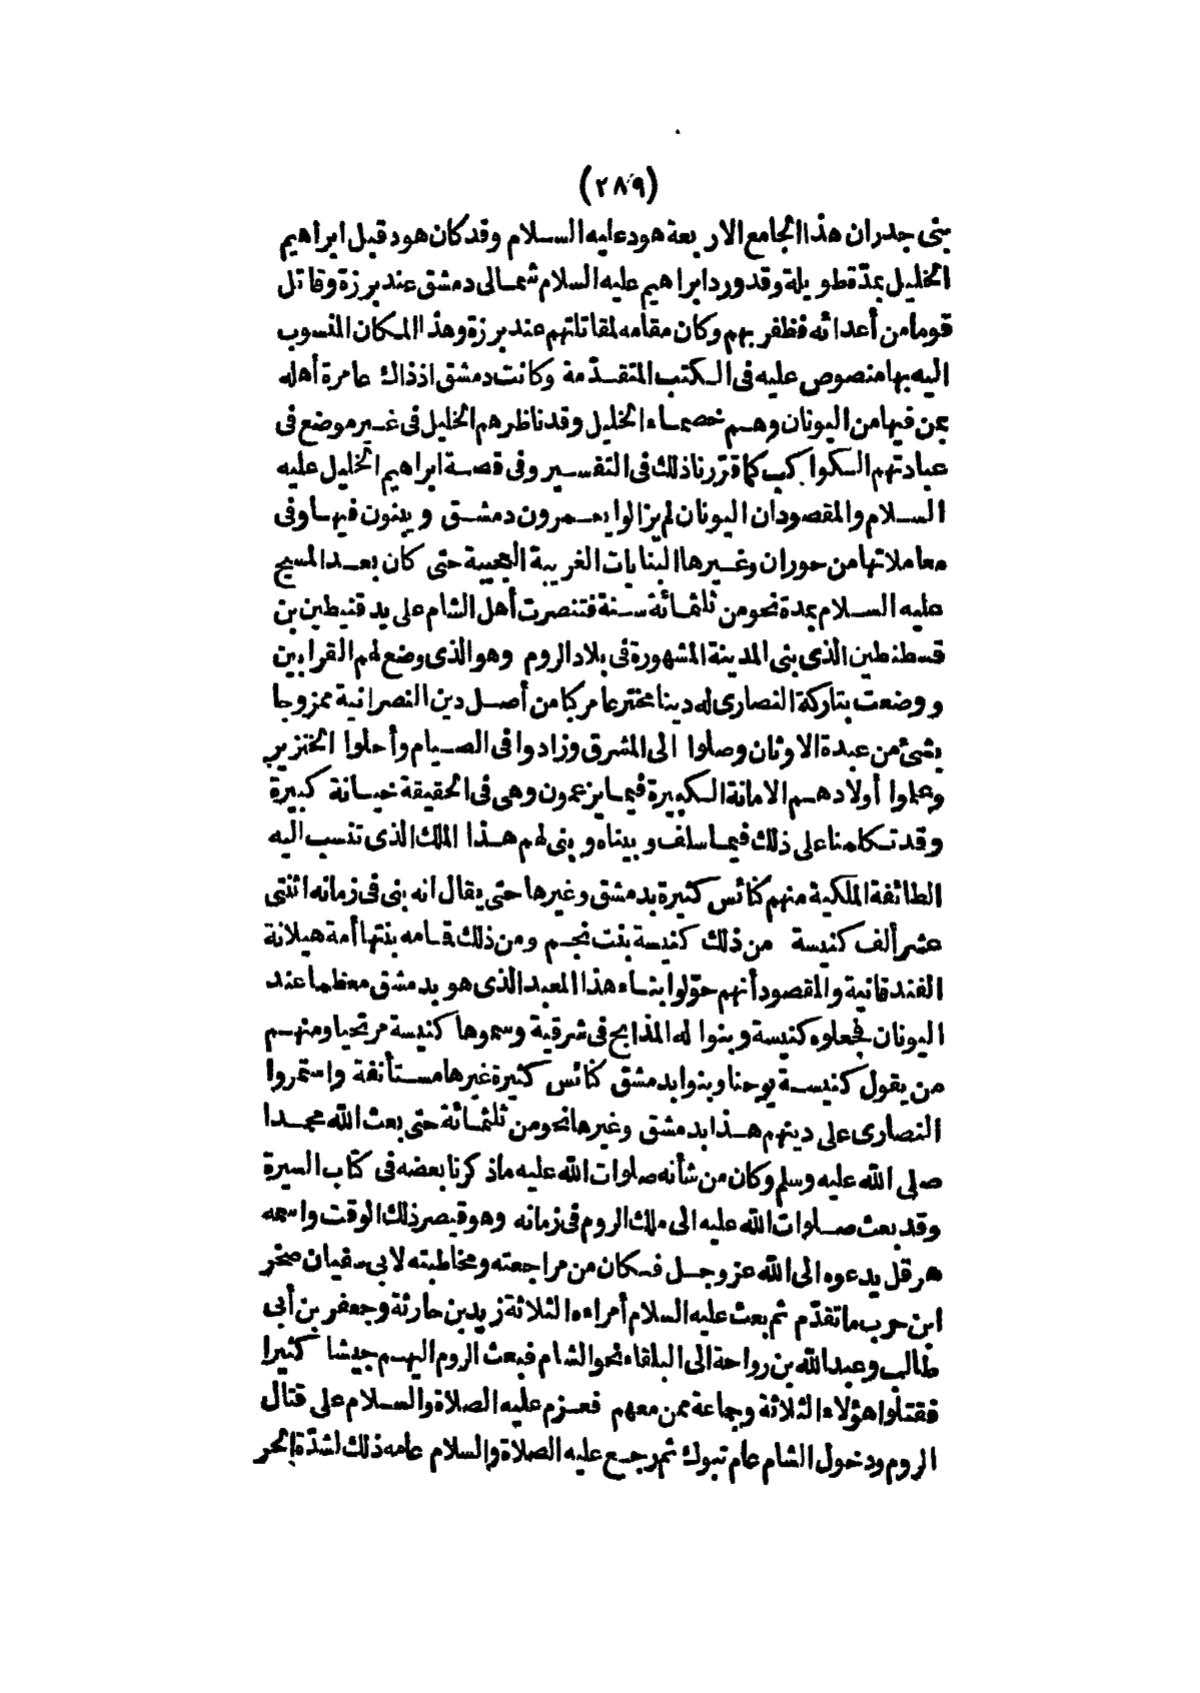 (٢٨٩)
بنى جدران هذا الجامع الاربعة هود عليه السلام وقد كان هود قبل ابراهيم
الخليل بمدة طويلة وقد ورد ابراهيم عليه السلام شمالى دمشق عند برزة وقاتل
قوما من أعدائه فظفر بهم وكان مقامه لمقاتلتهم عند برزة وهذا المكان المنسوب
اليه بها منصوص عليه فى الكتب المتقدّمة وكانت دمشق اذذاك عامرة أهله
بمن فيها من اليونان وهم خصماء الخليل وقد ناظرهم الخليل فى غير موضع فى
عبادتهم الكواكب كما قرّرنا ذلك فى التفسير وفى قصة ابراهيم الخليل عليه
السلام والمقصود ان اليونان لم يزالوا يعمرون دمشق ويبنون فيها وفى
معاملاتها من حوران وغيرها البنايات الغريبة العجيبة حتى كان بعد المسيح
عليه السلام بمدة نحو من ثلثمائة سنة فتنصرت أهل الشام على يد قنيطين بن
قسطنطين الذى بنى المدينة المشهورة فى بلاد الروم وهو الذى وضع لهم القرابين
ووضعت بتاركة النصارى له دينا مخترعا مركبا من أصل دين النصرانية ممزوجا
بشئ من عبدة الاوثان وصلوا الى المشرق وزادوا فى الصيام وأحلوا الخنزير
وعلموا أولادهم الامانة الكبيرة فيما يزعمون وهى فى الحقيقة خيانة كبيرة
وقد تكلمنا على ذلك فيما سلف وبيناه وبنى لهم هذا الملك الذى تنسب اليه
الطائفة الملكية منهم كنائس كثيرة بدمشق وغيرها حتى يقال انه بنى فى زمانه اثنتى
عشر ألف كنيسة من ذلك كنيسة بنت نجم ومن ذلك قمامه بنتها أمة هيلانة
الفندقانية والمقصود أنهم حوّلوا بناء هذا المعبد الذى هو بدمشق معظما عند
اليونان فجعلوه كنيسة وبنوا له المذابح فى شرقية وسموها كنيسة مر تحيا ومنهم
من يقول كنيسة يوحنا وبنوا بدمشق كنائس كثيرة غيرها مستأنفة واستمروا
النصارى على دينهم هذا بدمشق وغيرها نحو من ثلثمائة حتى بعث الله محمدا
صلى الله عليه وسلم وكان من شأنه صلوات الله عليه ما ذكرنا بعضه فى كتاب السيرة
وقد بعث صلوات الله عليه الى ملك الروم فى زمانه وهو قيصر ذلك الوقت واسمه
هرقل يدعوه الى الله عز وجل فكان من مراجعته ومخاطبته لابى سفيان صخر
ابن حرب ما تقدّم ثم بعث عليه السلام أمراءه الثلاثة زيد بن حارثة وجعفر بن أبى
طالب وعبد الله بن رواحة الى البلقاء نحو الشام فبعث الروم اليهم جيشا كثيرا
فقتلوا هؤلاء الثلاثة وجماعة ممن معهم فعزم عليه الصلاة والسلام على قتال
الروم ودخول الشام عام تبوك ثم رجع عليه الصلاة والسلام عامه ذلك لشدّة الحر